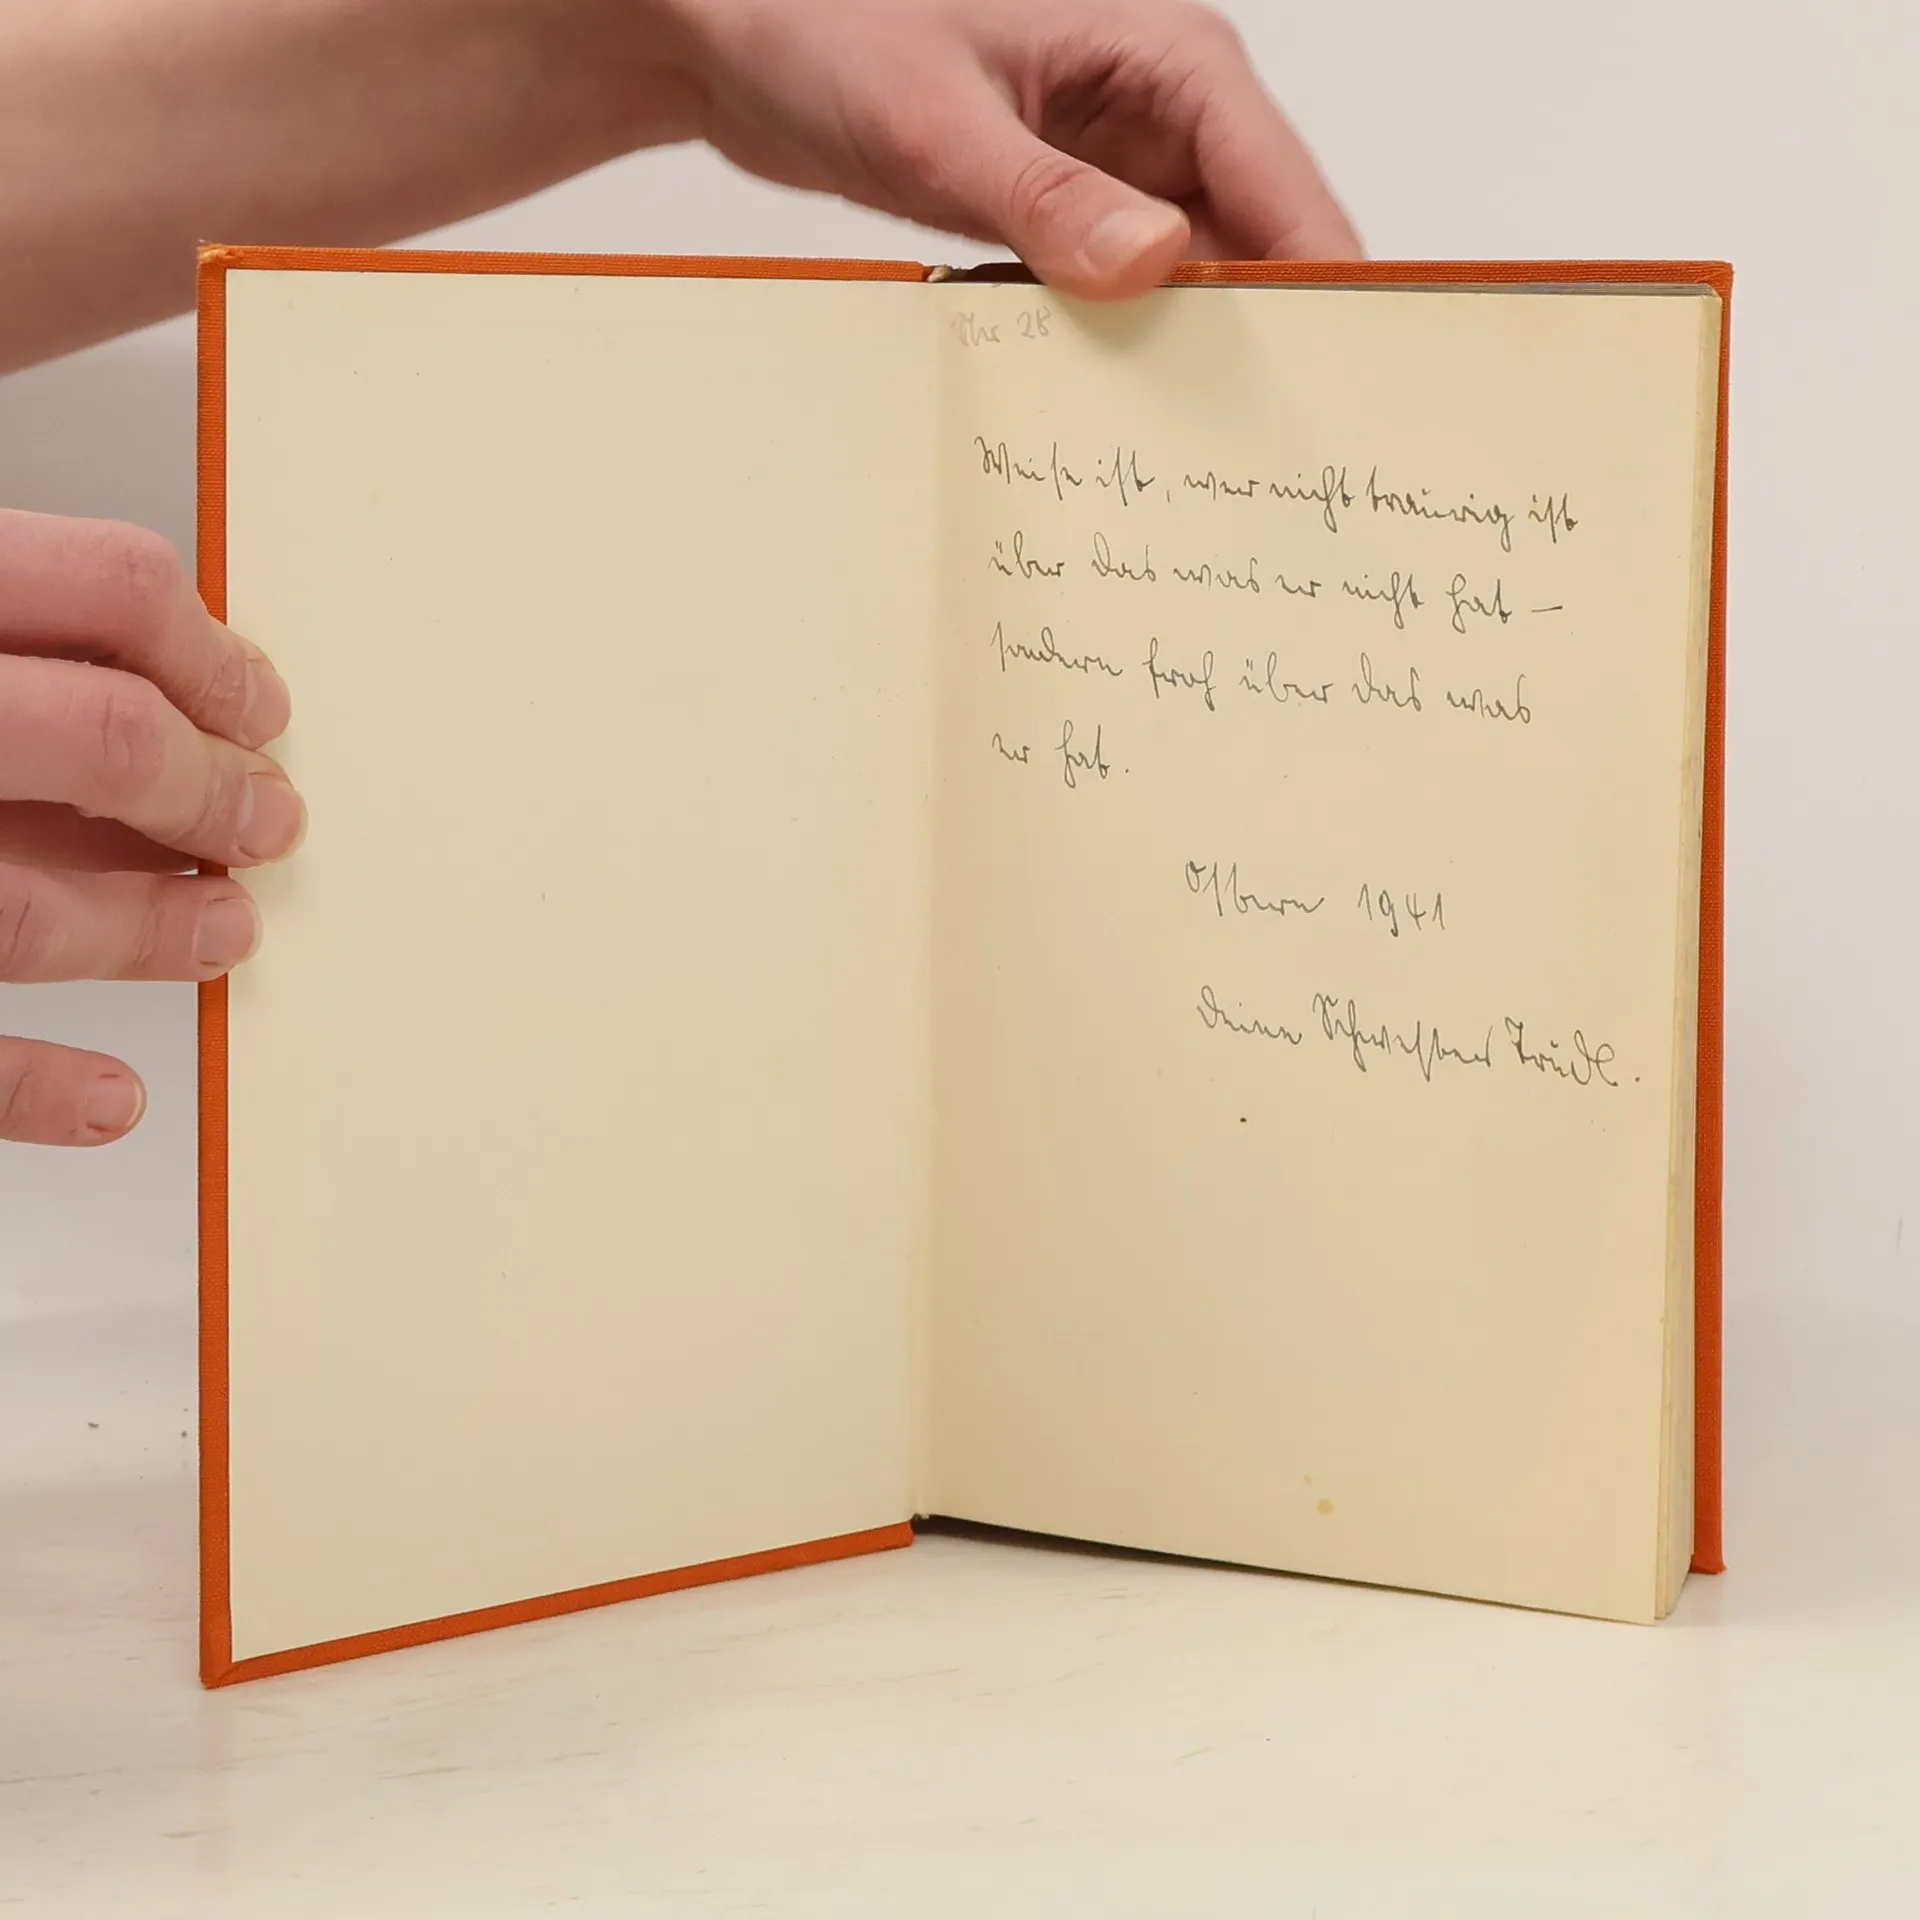 Nr 28
Weise ist, wer nicht traurig ist
über das was er nicht hat –
sondern froh über das was
er hat.
Ostern 1941
Deine Schwester Trudl.